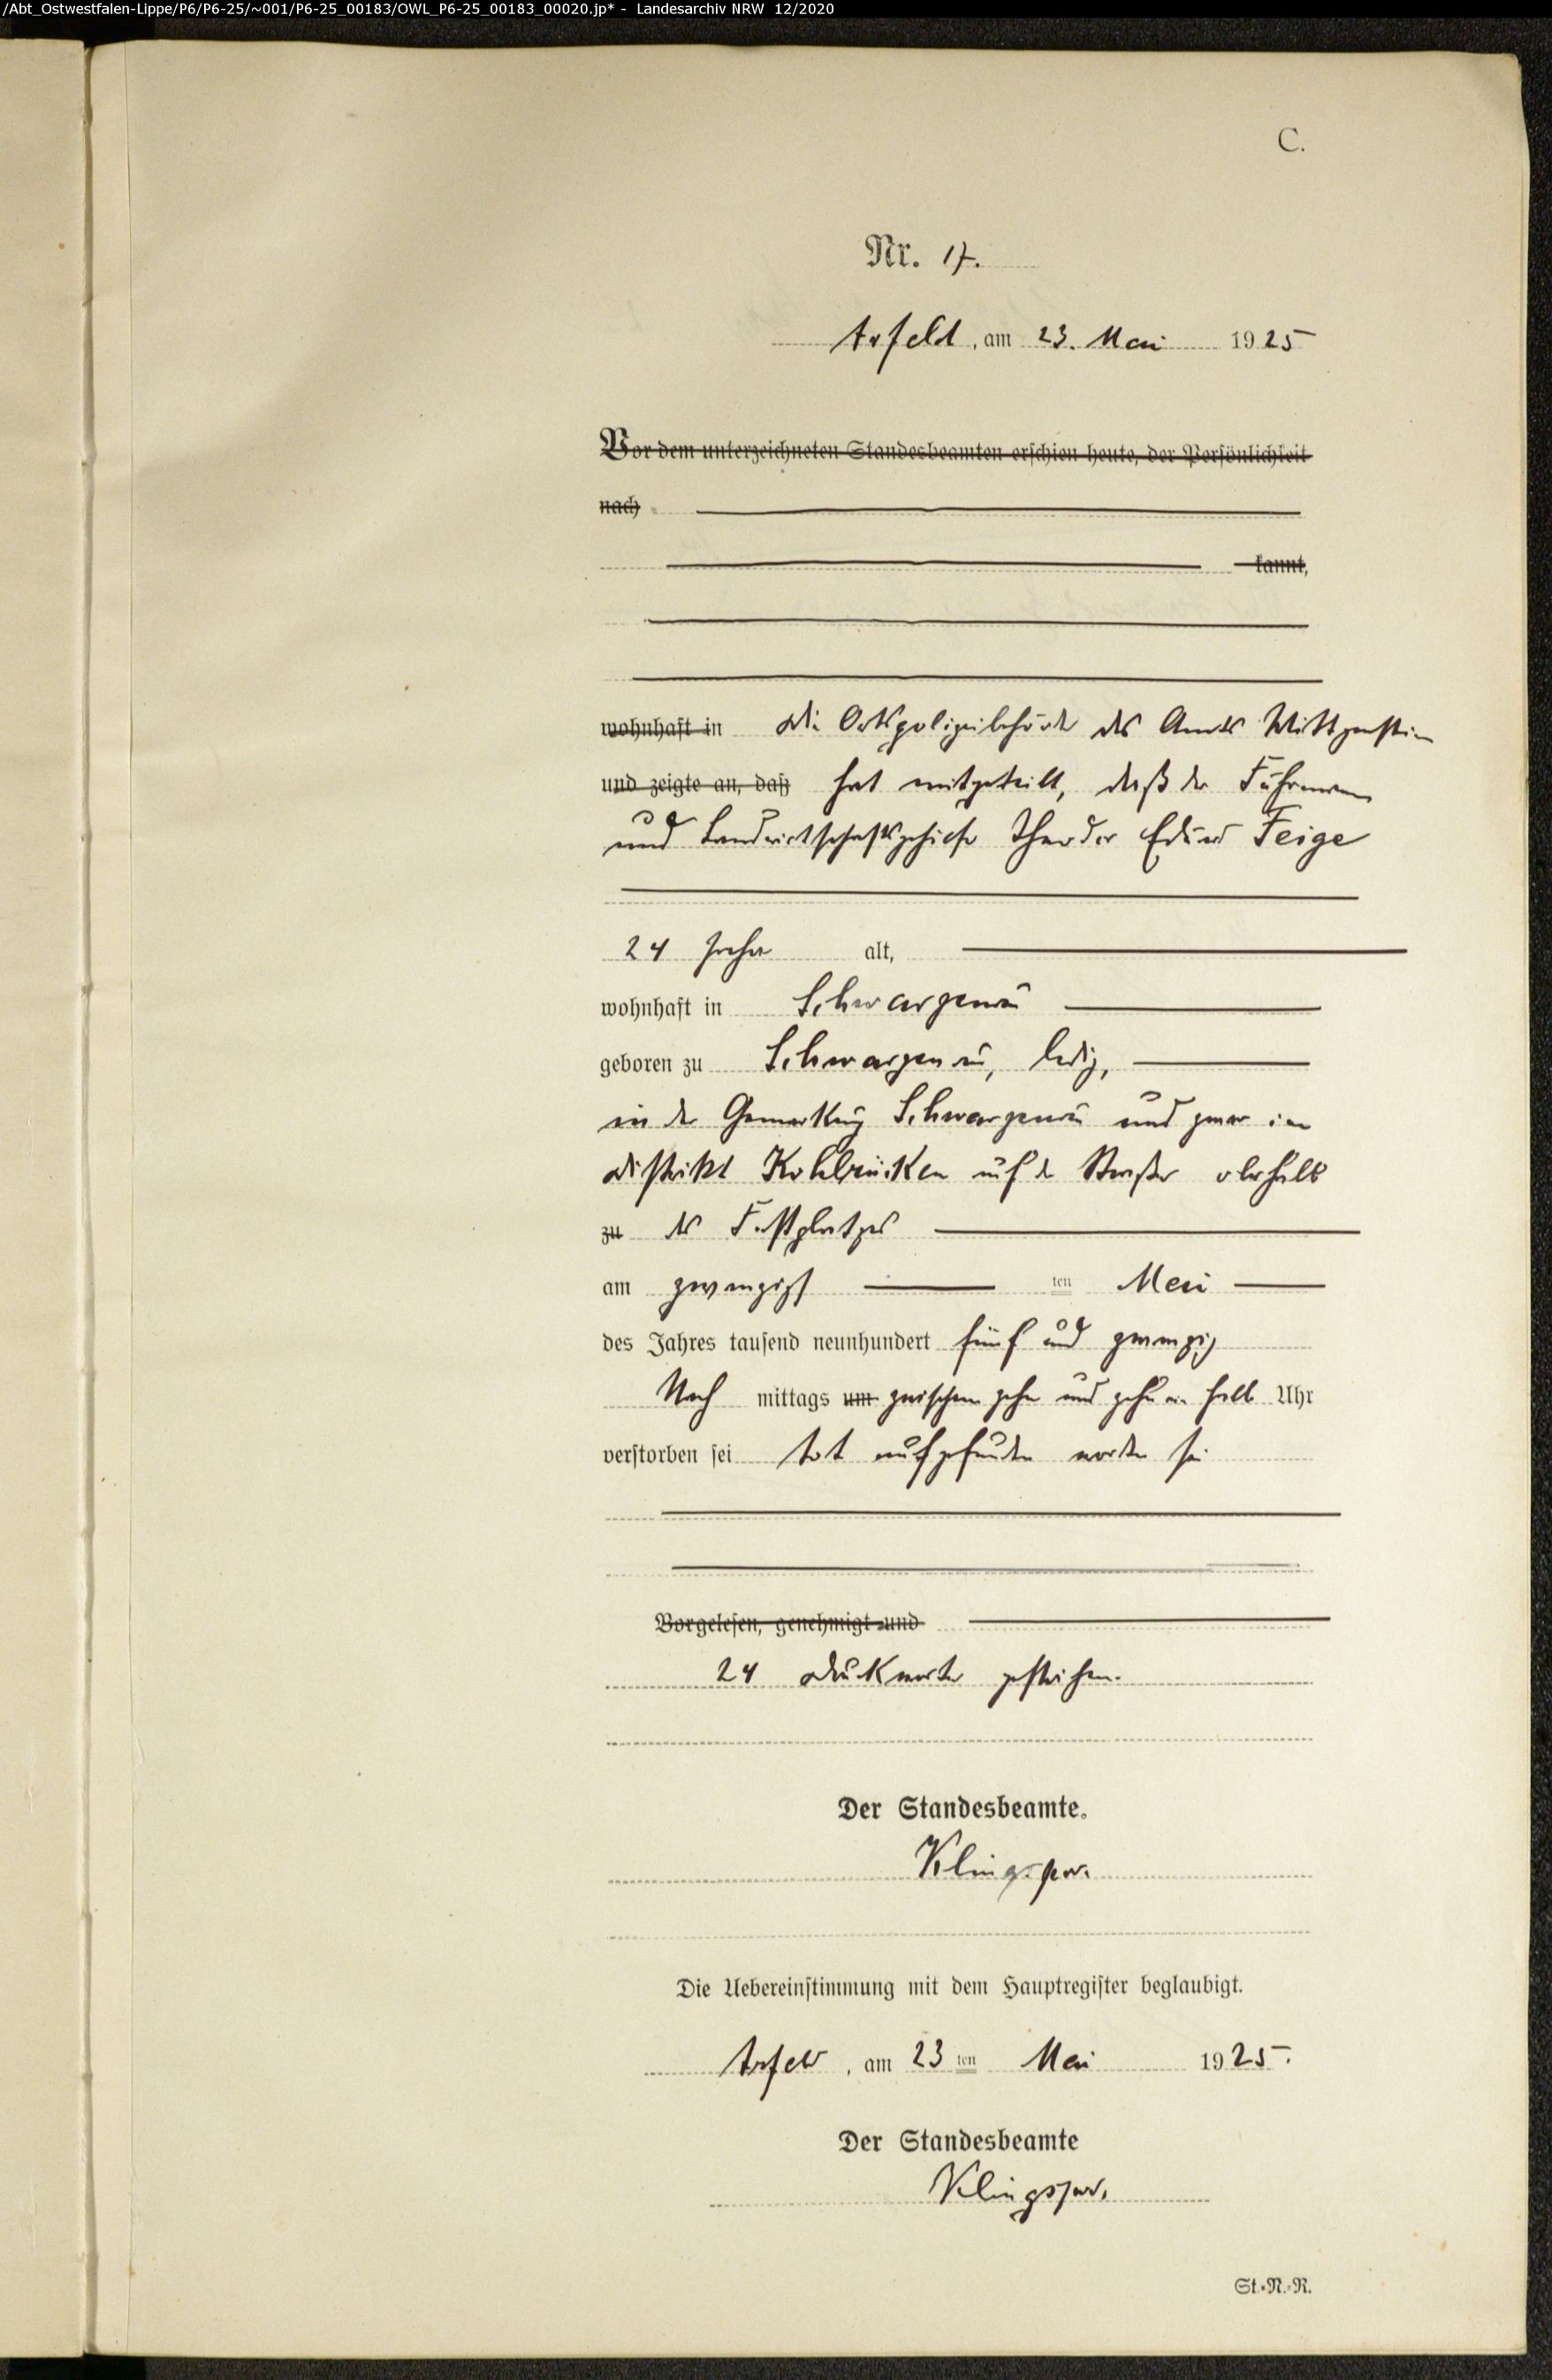 /Abt_Ostwestfalen-Lippe/P6/P6-25/~001/P6-25_00183/OWL_P6-25_00183_00020.jp* - Landesarchiv NRW 12/2020
C.
Nr. 17.
Arfeld, am 23. Mai 1925
Vor dem unterzeichneten Standesbeamten erschien heute, der Persönlichkeit
nach
kannt,
wohnhaft in die Ortspolizeibehörde des Amts Wittgenstein
und zeigte an, daß hat mitgeteilt, daß der Fuhrmann
und Landwirtschaftsgehilfe Theodor Eduard Feige
24 Jahre alt,
wohnhaft in Schwarzenau
geboren zu Schwarzenau, ledig,
in der Gemarkung Schwarzenau und zwar im
Distrikt Kohlrücken auf der Straße oberhalb
zu des Festplatzes
am zwanzigsten Mai
des Jahres tausend neunhundert fünf und zwanzig
Nach mittags um zwischen zehn und zehn ein halb Uhr
verstorben sei tot aufgefunden worden sei
Vorgelesen, genehmigt und
24 Druckworte gestrichen.
Der Standesbeamte.
Klingspor.
Die Uebereinstimmung mit dem Hauptregister beglaubigt.
Arfeld, am 23ten Mai 1925.
Der Standesbeamte
Klingspor.
St.-N.-R.